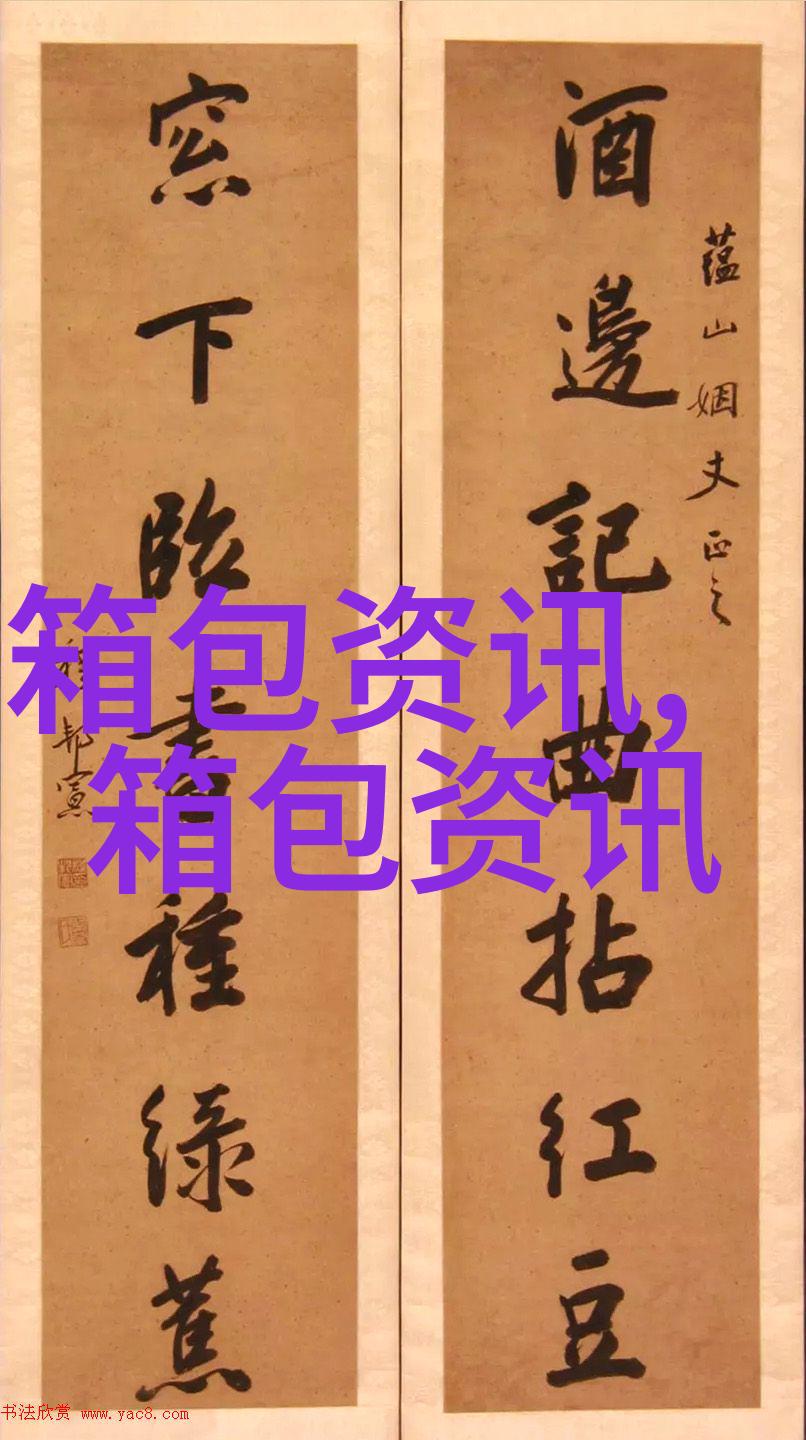 酒邊記曲拈紅豆
蕴山姻丈正之
窓下臨書種綠蕉
程邦憲
箱包资讯,
箱包资讯
书法欣赏 www.yac8.com